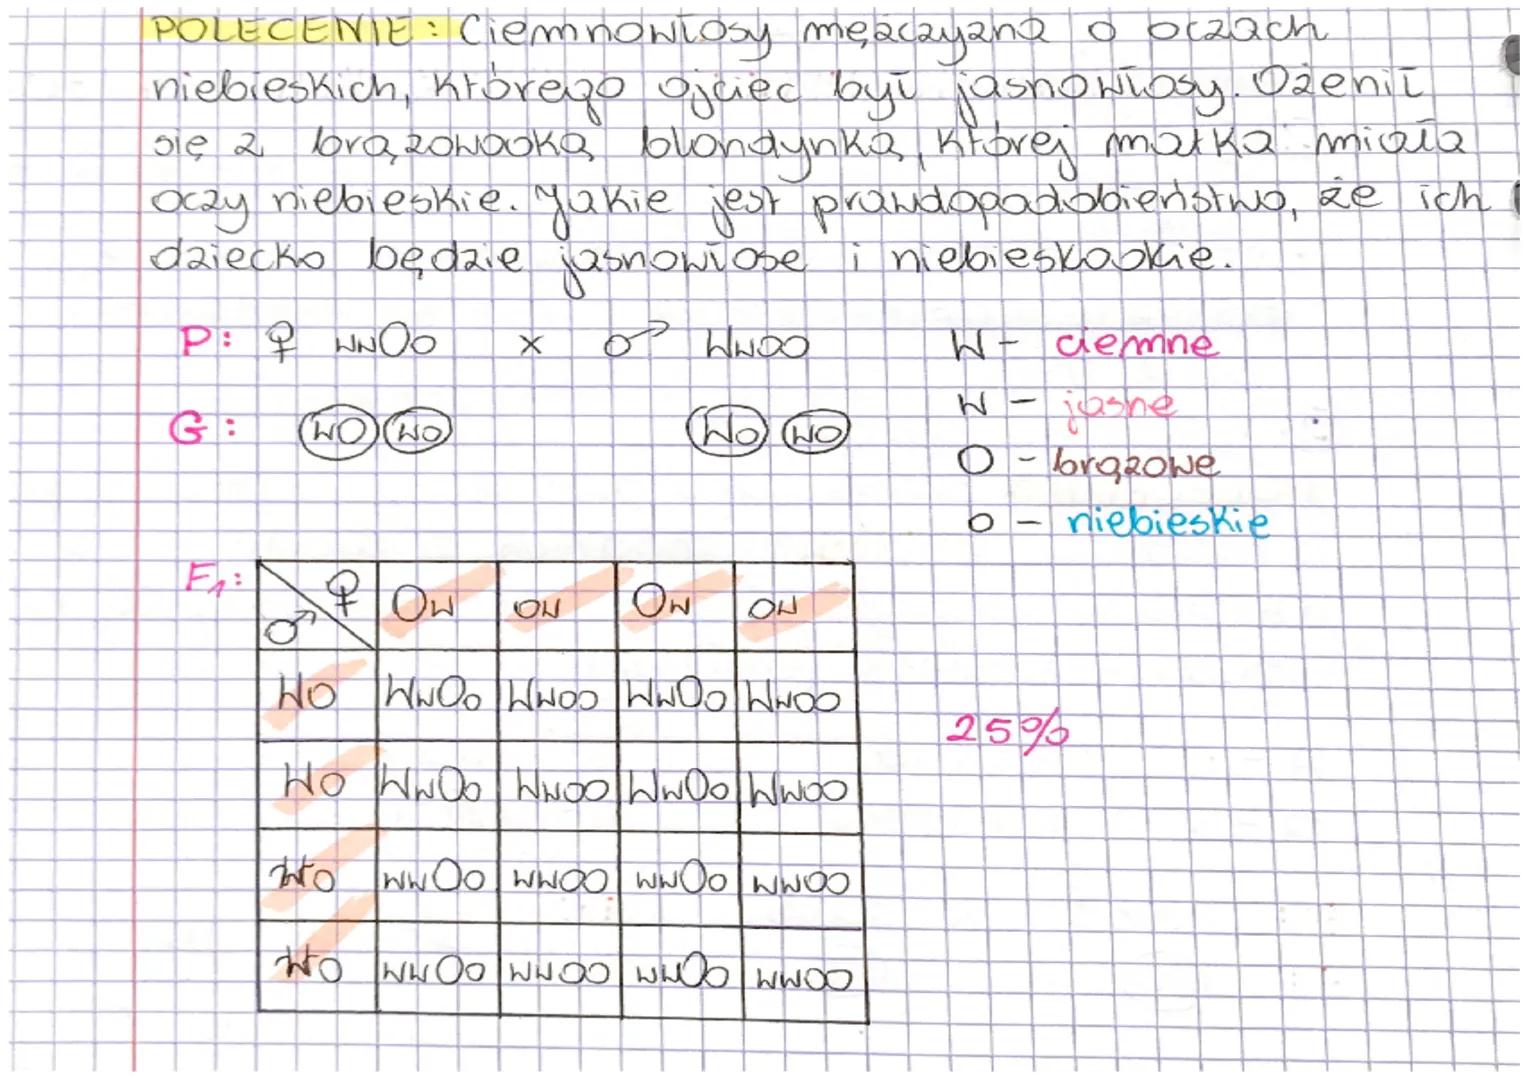 POLECENIE: Ciemnowłosy mężczyzna o oczach
niebieskich, którego ojciec był jasnowłosy. Ożenił
się z brązowooką blondynką, której matka miała
oczy niebieskie. Jakie jest prawdopodobieństwo, że ich
dziecko będzie jasnowłose i niebieskookie.
P: ♀ wwOo x ♂ Wwoo W - ciemne
w - jasne
G: wO wo Wo wo
O - brązowe
o - niebieskie
F₁: ♀ ♂ Ow ow Ow ow
Wo WwOo Wwoo WwOo Wwoo
25%
Wo WwOo Wwoo WwOo Wwoo
wo wwOo wwoo wwOo wwoo
wo wwOo wwoo wwOo wwoo